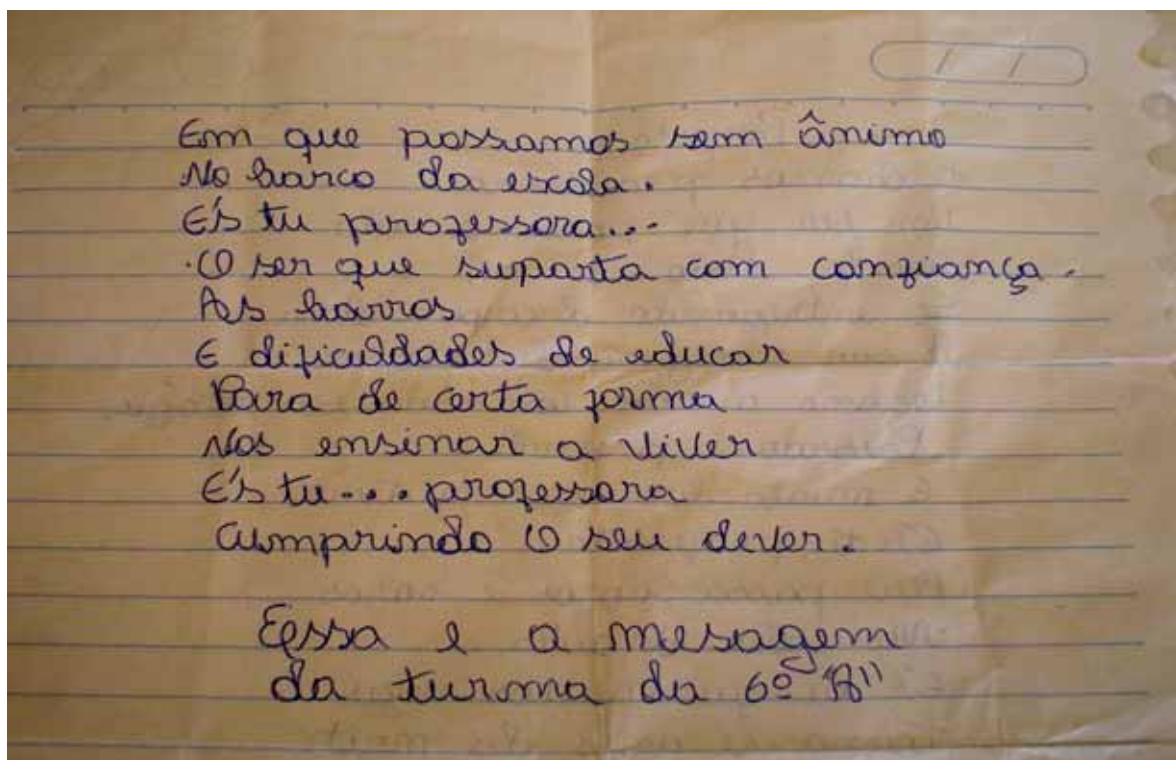 Em que possamos sem ânimo
No barco da escola.
És tu professora...
O ser que suporta com confiança.
As barras
E dificuldades de educar
Para de certa forma
Nos ensinar a viver
És tu... professora
Cumprindo o seu dever.
Essa e a mesagem
da turma da 6º "B"